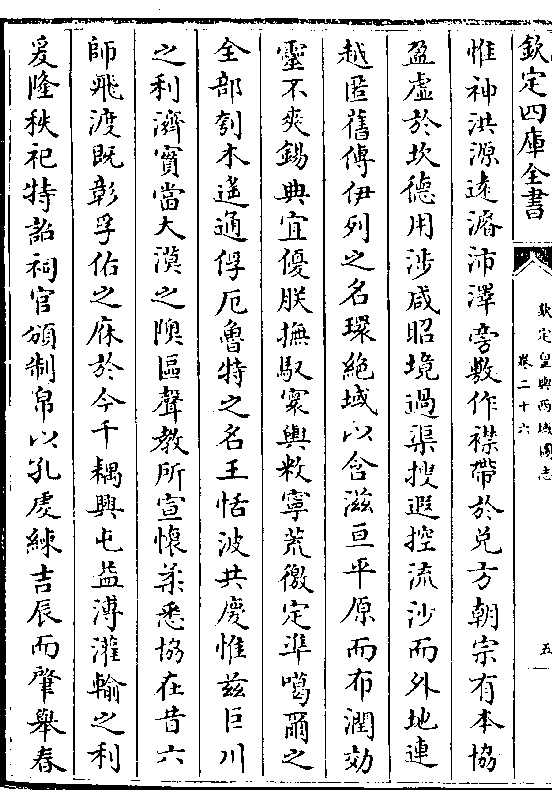 欽定四庫全書
欽定皇輿西域圖志
卷二十六
五
惟神洪源遠濬沛澤旁敷作襟帶於兌方朝宗有本協
盈虛於坎德用涉咸昭境過渠搜遐控流沙而外地連
越匿舊傳伊列之名環絶域以含滋亘平原而布潤効
靈不爽錫典宜優朕撫馭寰輿敉寧荒徼定準噶爾之
全部刳木遙通俘厄魯特之名王恬波共慶惟兹巨川
之利濟實當大漠之隩區聲教所宣懷柔悉協在昔六
師飛渡既彰孚佑之庥於今千耦興屯益溥灌輸之利
爰隆秩祀特詔祠官頒制帛以孔虔練吉辰而肇舉春